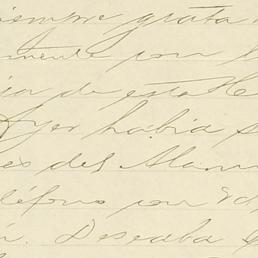 siempre grata
mente con l
ia de esta H
Ayer había s
es del Alam
léfono con Ed
n. Deseaba